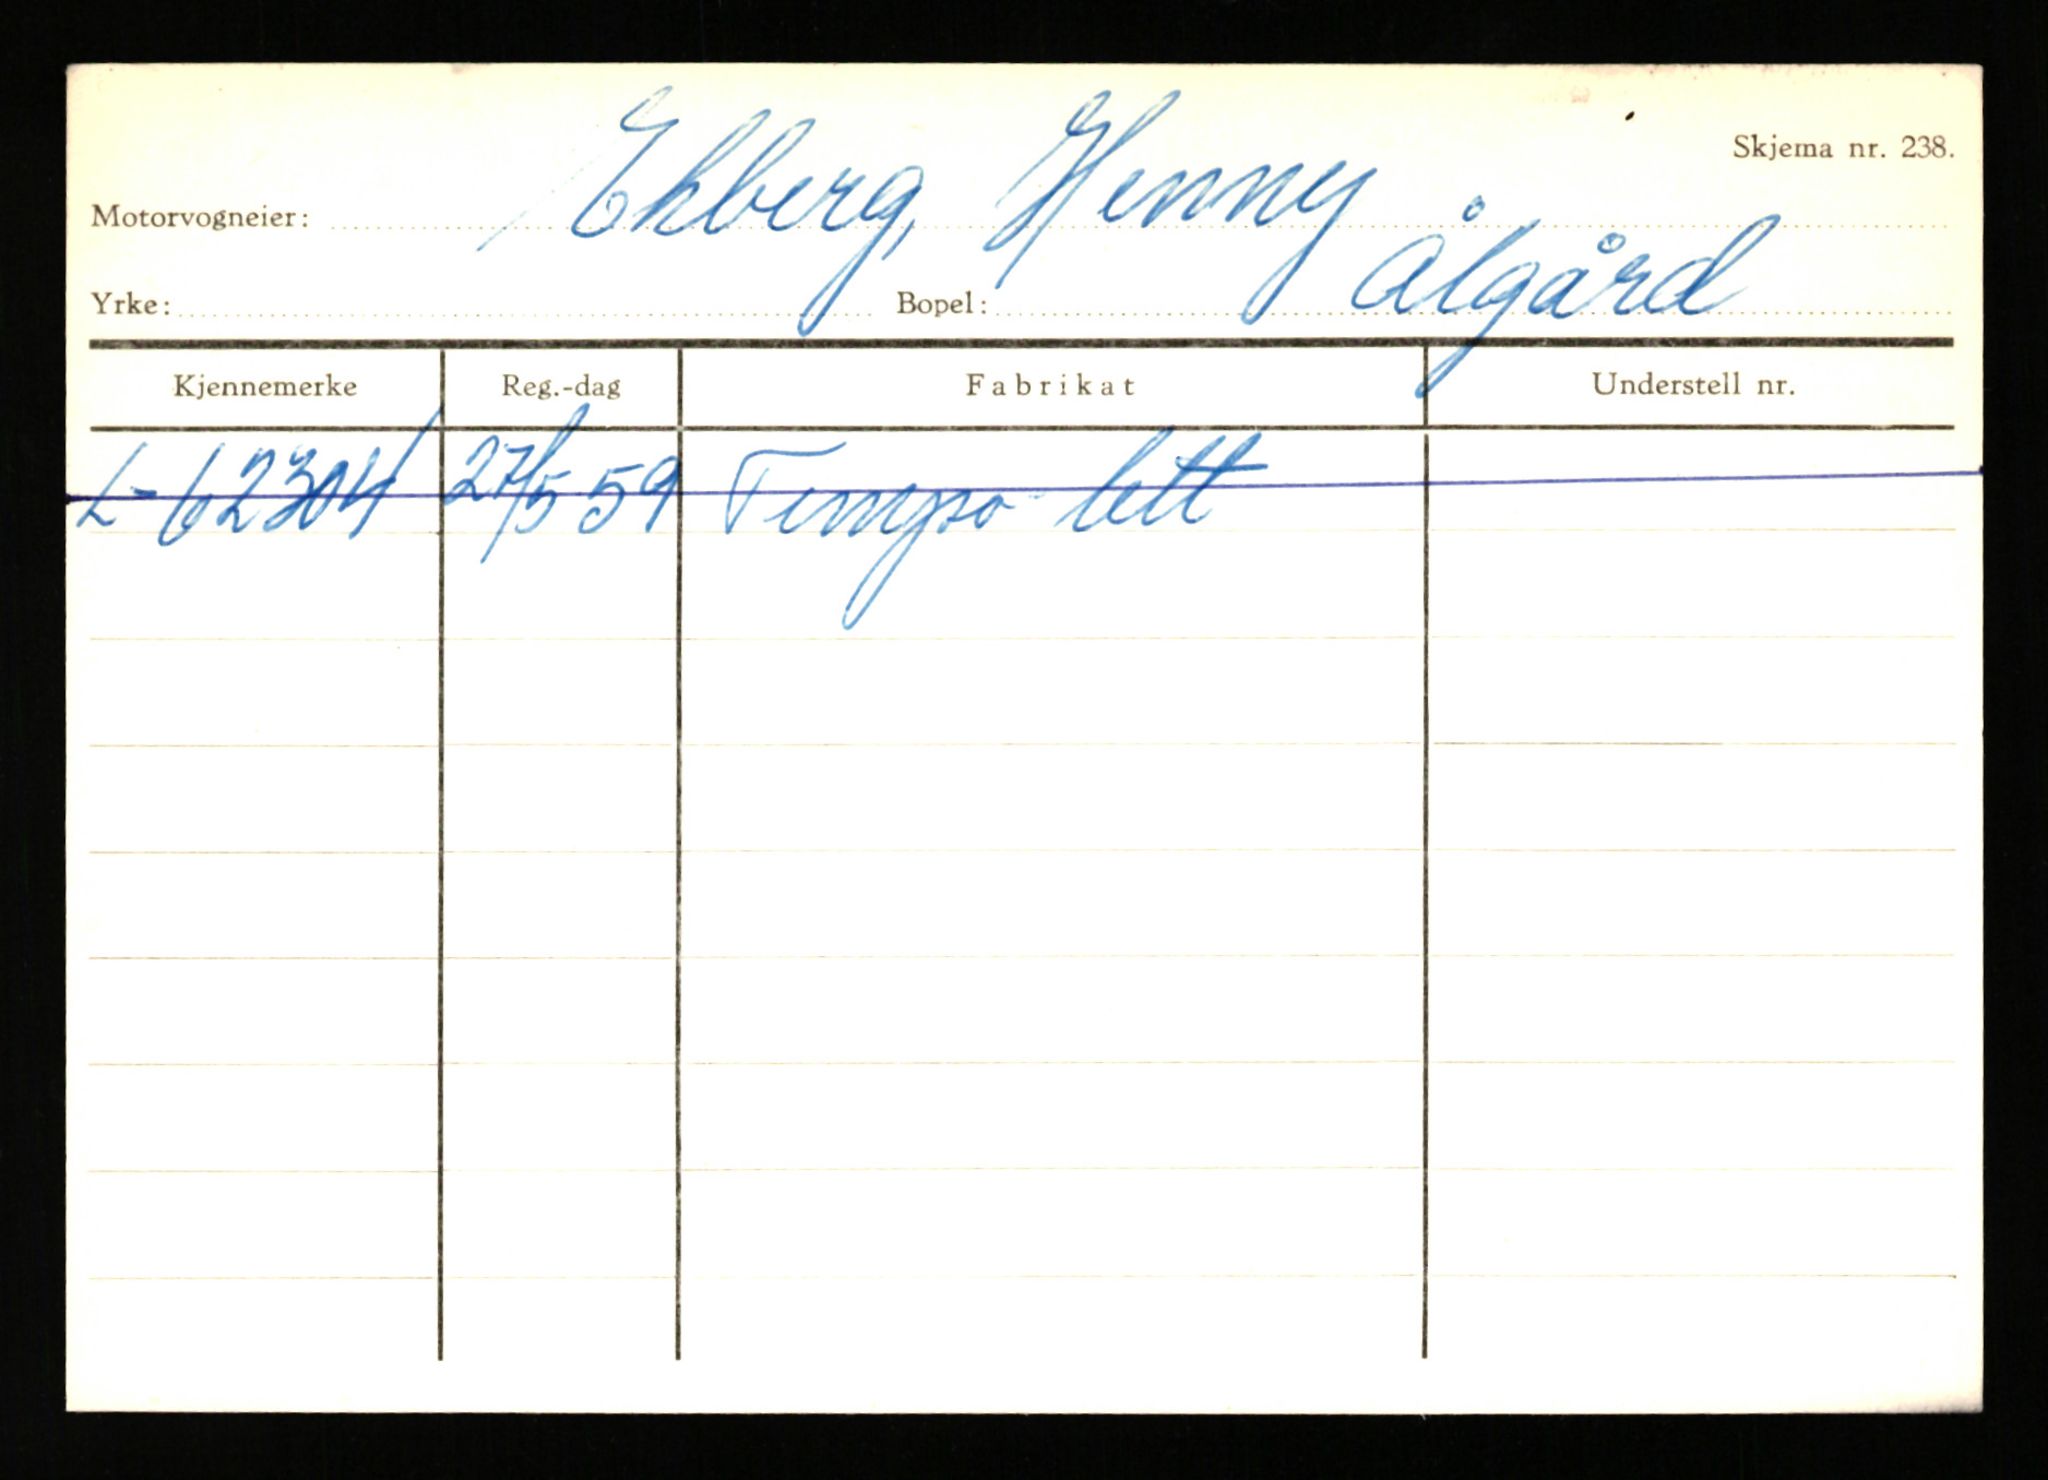 Skjema nr. 238.
Motorvogneier: Ekberg, Henny
Yrke: Bopel: Ålgård
Kjennemerke Reg.-dag Fabrikat Understell nr.
L-62304 27/5 59 Tempo lett